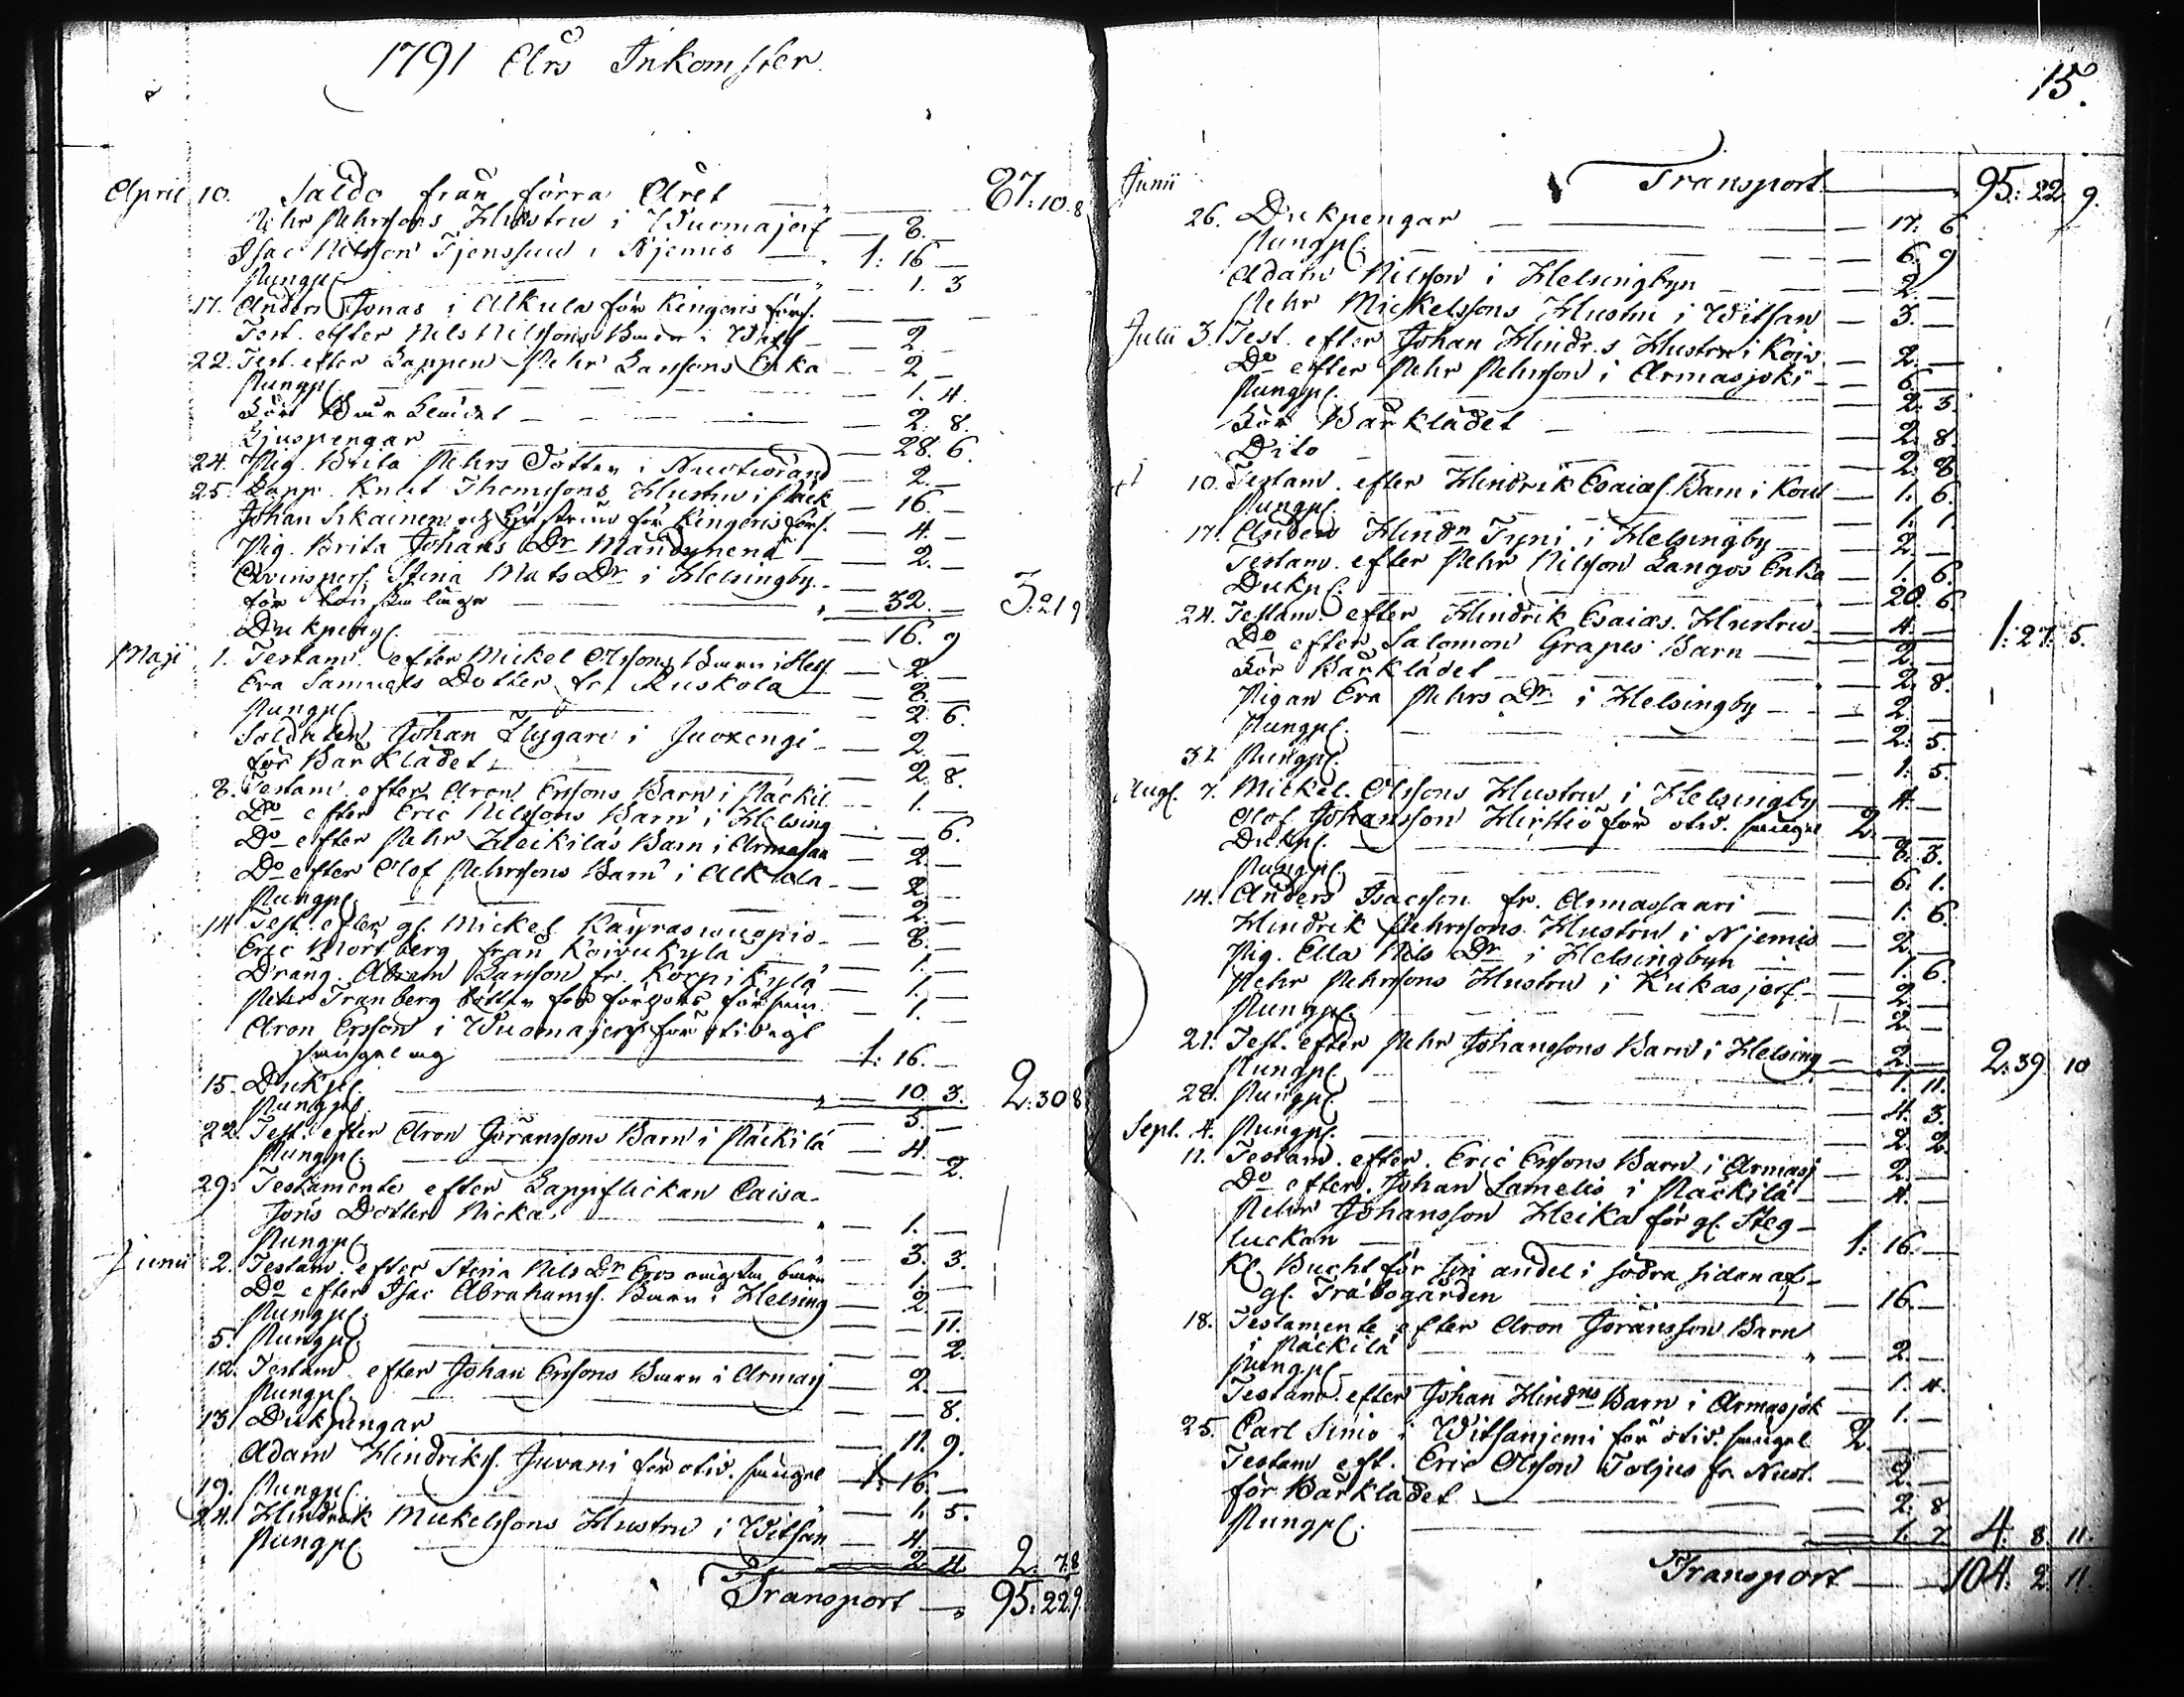 1791 Års Inkomster
April 10. Saldo från förra Året — 87: 10. 8
Pehr Pehrssons Hustru i Wuomajerf — 8. —
Isac Nilsson Tjenssuu i Njemis — 1: 16 —
Pungp. — 1. 3
17. Anders Jonas i Alkula för Kingeris förs. —
Test. efter Nils Nilssons Barn i Wits — 2. —
22. Test. efter Lappen Pehr Larssons Enka — 2 —
Pungp. — 1. 4.
För Bårklädet — 2. 8.
Ljuspengar — 28. 6.
24. Pig. Brita Pehrs Dotter i — 2. —
25. Lapp. Knut Thomssons Hustru i Päck — 16. —
Johan Sikainen och Hustrun för Kingeris förs. — 4. —
Pig. Brita Johans Dr. — 2. —
Qvinspers. Stina Mats Dr. i Helsingby —
för — 32. — 3: 21 9
Dukpeng. — 16. 9
Maji 1. Testam. efter Mickel Olssons Barn i Hels — 2. —
Eva Samuels Dotter fr. Ruskola — 8. —
Pungp. — 2. 6.
Soldaten Johan Flygare i Juoxengi — 2. —
för Bårklädet — 2. 8.
8. Testam. efter Aron Erssons Barn i Päckil. — 1. —
Do efter Eric Nilssons Barn i Helsing — 6.
Do efter Pehr Heikiläs Barn i Armasaa — 2. —
Do efter Olof Pehrssons Barn i Alkula — 2 —
Pungp. — 2. —
14 Test. efter gl. Mickel — 8. —
Eric Mört berg från Koivukylä — 1. —
Dräng. Abram Larsson fr. Korpikylä — 1. —
Pehr Tranberg — 1. —
Aron Ersson i Wuomajerf för
— 1: 16. —
15. Dukp. — 10. 3. 2: 30 8
Pungp. — 3. —
22. Test. efter Aron Göranssons Barn i Päckilä — 4. —
Pungp. — 2.
29. Testamente efter Lappflickan Caisa
Jons Dotter Nicka — 1. —
Pungp. — 3. 3.
Junii 2. Testam. efter Stina Nils Dr. — 1. —
Do efter Isac Abrahams. Barn i Helsing — 2. —
Pungp. — 11.
5. Pungp. — 2.
12. Testam. efter Johan Erssons Barn i Armasj — 2. —
Pungp. — 8.
13 Dukpengar — 11. 9.
Adam Hindriks. Juvani för otid. — 1: 16. —
19. Pungp. — 1. 5.
24. Hindrik Mickelssons Hustru i Witsan — 4. —
Pungp. — 2. 4. 2: 7. 8
Transport — 95: 22. 9.
15.
Junii Transport — 95: 22. 9.
26. Dukpengar — 17. 6.
Pungp. — 6. 9
Adam Nilsson i Helsingbyn — 2. —
Pehr Mickelssons Hustru i Witsan — 3. —
Julii 3. Test. efter Johan Hindr.s Hustru i Koiv. — 2. —
Do efter Pehr Pehrsson i Armasjoki — 6. —
Pungp. — 2. 3.
För Bårklädet — 2. 8.
Dito — 2. 8
10. Testam. efter Hindrik Esaias. Barn i — 1. 6.
Pungp. — 1. 1.
17. Anders Hindn Tyni i Helsingby — 2. —
Testam. efter Pehr Nilsson Langos Enka — 1. 6.
Dukp. — 20. 6.
24. Testam. efter Hindrik Esaias. Hustru — 4. — 1: 27. 5.
Do efter Salomon Grapes Barn — 2. —
För Bårklädet — 2. 8.
Pigan Eva Pehrs Dr. i Helsingby — 2. —
Pungp. — 2. 5.
31 Pungp. — 1. 5.
Aug. 7. Mickel Olssons Hustru i Helsingby — 4. —
Olof Johansson för otid. 2. —
Dukp. — 8. 3.
Pungp. — 6. 1.
14. Anders Isacsson fr. Armassaari — 1. 6.
Hindrik Pehrssons Hustru i Njemis — 2. —
Pig. Ella Nils Dr. i Helsingbyn — 1. 6.
Pehr Pehrssons Hustru i Kukasjerf — 2. —
Pungp. — 2. —
21. Test. efter Pehr Johanssons Barn i Helsing — 2. — 2: 39. 10
Pungp. — 1. 11.
28. Pungp. — 4. 3.
Sept. 4. Pungp. — 2. 2.
11. Testam. efter Eric Erssons Barn i Armasj — 2. —
Do efter Johan Lamelis i Päckilä — 4. —
Pehr Johansson Heika för gl. Steg-
luckan — 1: 16. —
Kl. Bucht för sin andel i södra sidan af
gl. Träbogården — 16. —
18. Testamente efter Aron Göransson Barn
i Päckilä — 2. —
Pungp. — 1. 4.
Testam. efter Johan Hindns Barn i Armasjok — 1. —
25. Carl Simo i Witsanjemi för otid. 2. —
Testam eft. Eric Olsson Toljus fr. — 2. —
för Bårklädet — 2. 8
Pungp. — 1. 7. 4: 8. 11.
Transport — 104: 2. 11.